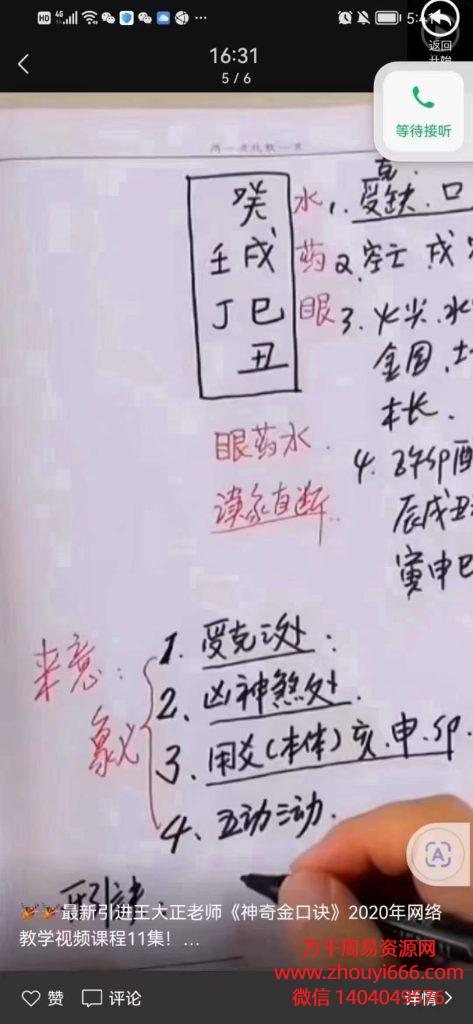 HD 4G
返回
16:31
5/6
等待接听
癸 水 1、受缺、口
壬戌 药 2、空亡、戌
丁巳 眼 3、火尖、水
丑 金圆、土
木长.
眼药水. 4.
辰戌丑
读象直断.. 寅申巳
来意: 象义
1、受克之处:
2、凶神煞处.
3、用爻(本体)亥.申.
4、五动三动.
🎉🎉最新引进王大正老师《神奇金口诀》2020年网络
教学视频课程11集!...
万千周易资源网
www.zhouyi666.com
赞 评论 详情>